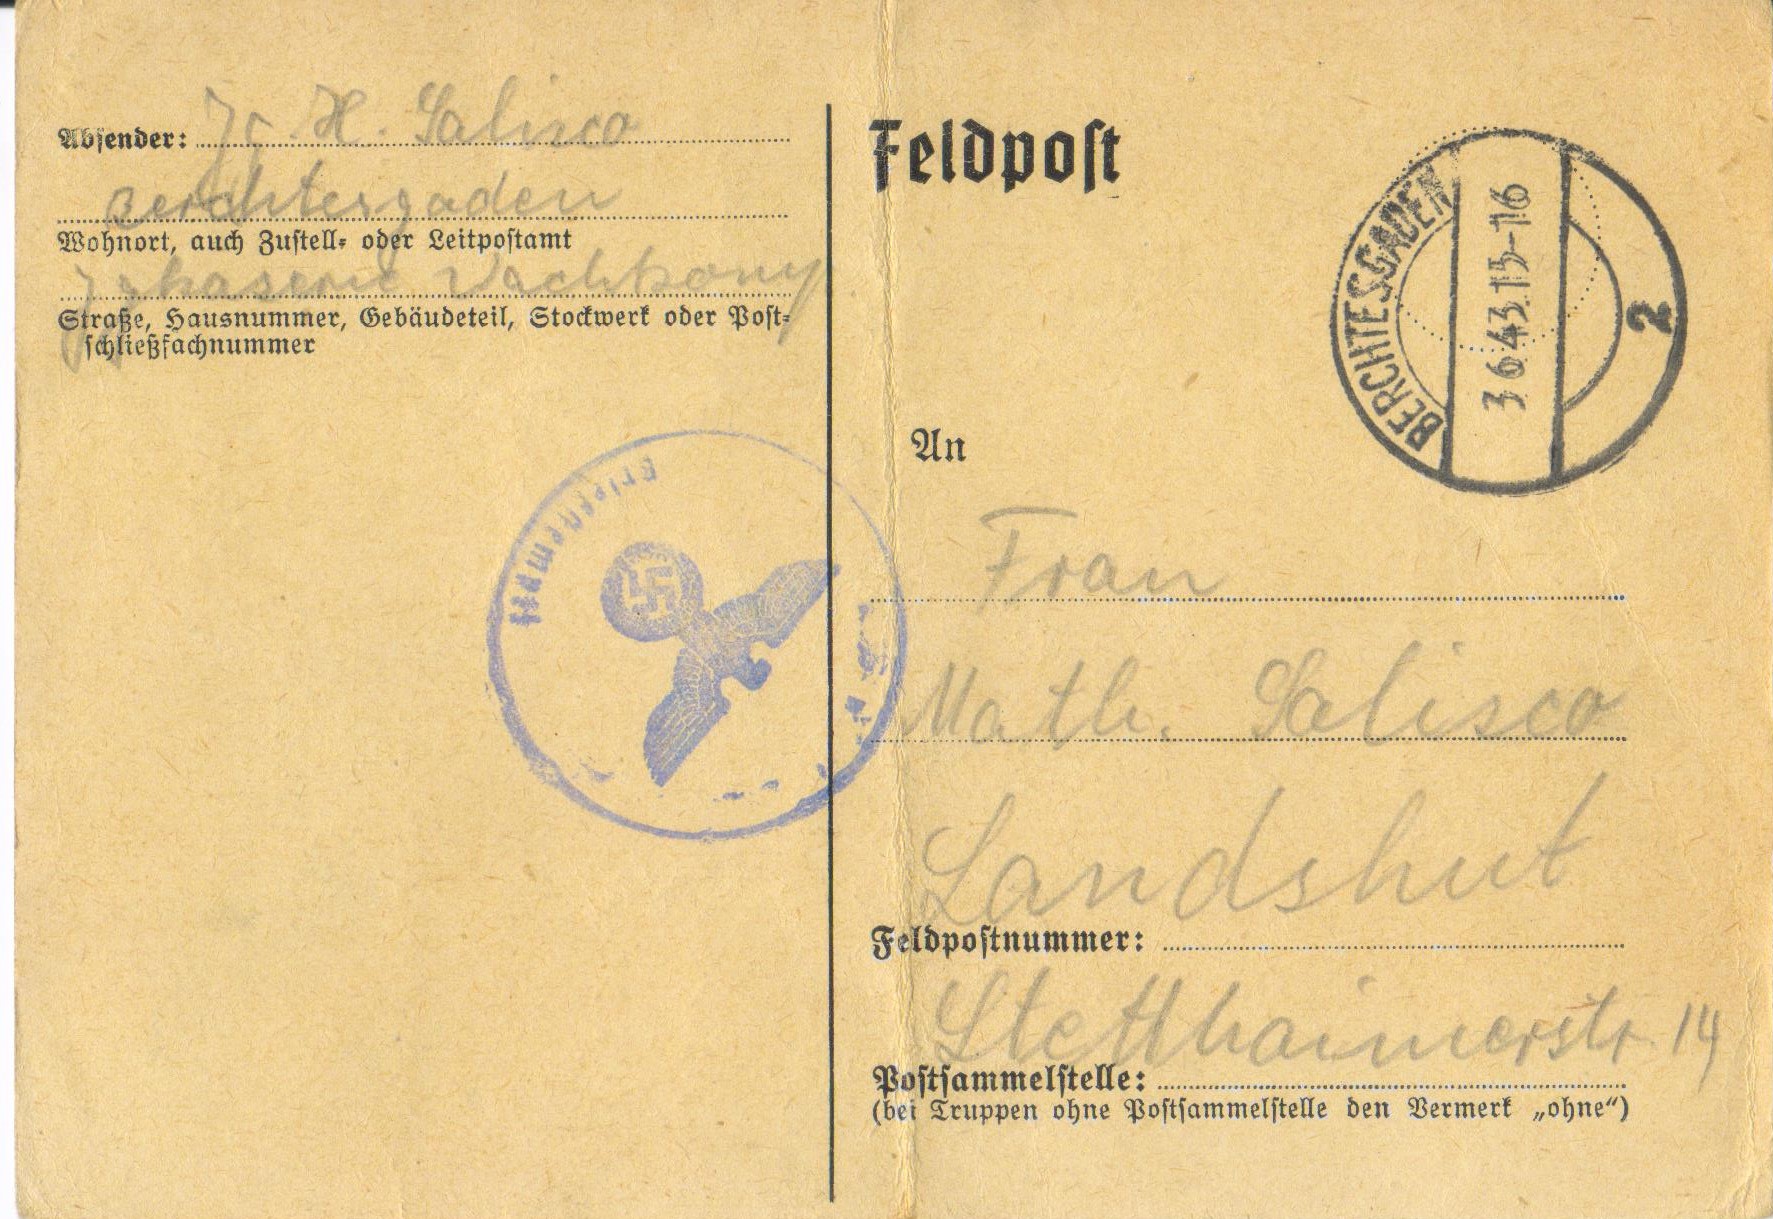 Absender: Jg. H. Salisco
Berchtesgaden
Wohnort, auch Zustell- oder Leitpostamt
Jgkaserne
Straße, Hausnummer, Gebäudeteil, Stockwerk oder Post-
schließfachnummer
Briefstempel
Feldpost
BERCHTESGADEN
3.6.43.15-16
2
An
Frau
Math. Salisco
Landshut
Feldpostnummer:
Stetthaimerstr 14
Postsammelstelle:
(bei Truppen ohne Postsammelstelle den Vermerk „ohne“)